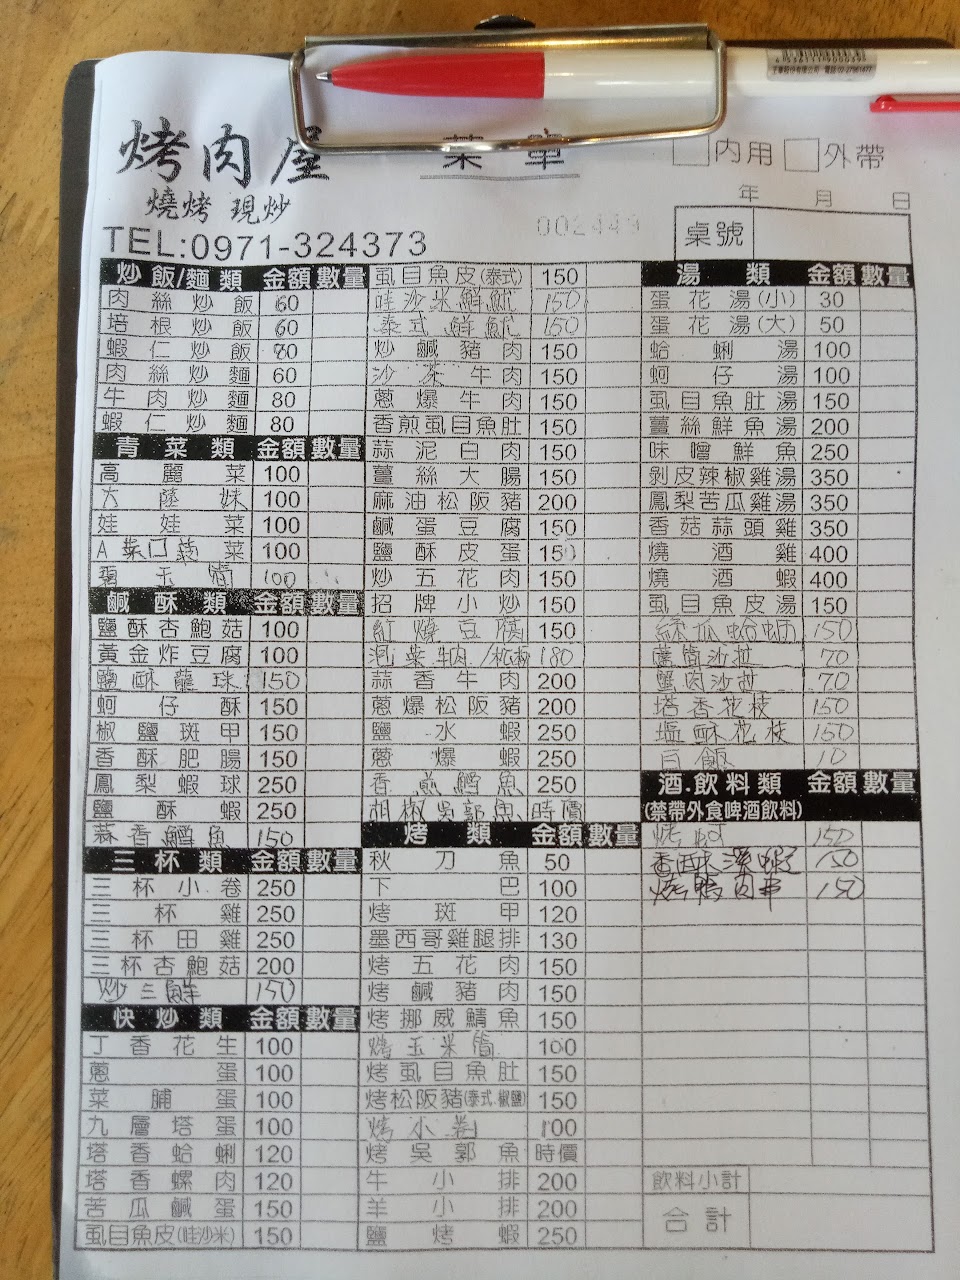 烤肉屋
菜單
燒烤 現炒
TEL:0971-324373
002449
□內用 □外帶
年 月 日
桌號
炒飯/麵類 金額 數量
肉絲炒飯 60
培根炒飯 60
蝦仁炒飯 80
肉絲炒麵 60
牛肉炒麵 80
蝦仁炒麵 80
青菜類 金額 數量
高麗菜 100
大陸妹 100
娃娃菜 100
A菜 菜 100
玉筍 100
鹹酥類 金額 數量
鹽酥杏鮑菇 100
黃金炸豆腐 100
鹽酥龍珠 150
蚵仔酥 150
椒鹽斑甲 150
香酥肥腸 150
鳳梨蝦球 250
鹽酥蝦 250
蒜香鱈魚 150
三杯類 金額 數量
三杯小卷 250
三杯雞 250
三杯田雞 250
三杯杏鮑菇 200
炒三鮮 150
快炒類 金額 數量
丁香花生 100
蔥蛋 100
菜脯蛋 100
九層塔蛋 100
塔香蛤蜊 120
塔香螺肉 120
苦瓜鹹蛋 150
虱目魚皮(哇沙米) 150
虱目魚皮(泰式) 150
哇沙米鮮魷 150
泰式鮮魷 150
炒鹹豬肉 150
沙茶牛肉 150
蔥爆牛肉 150
香煎虱目魚肚 150
蒜泥白肉 150
薑絲大腸 150
麻油松阪豬 200
鹹蛋豆腐 150
鹽酥皮蛋 150
炒五花肉 150
招牌小炒 150
紅燒豆腐 150
泡菜牛肉/松板 180
蒜香牛肉 200
蔥爆松阪豬 200
鹽水蝦 250
蔥爆蝦 250
香煎鱈魚 250
胡椒吳郭魚 時價
烤類 金額 數量
秋刀魚 50
下巴 100
烤斑甲 120
墨西哥雞腿排 130
烤五花肉 150
烤鹹豬肉 150
烤挪威鯖魚 150
烤玉米筍 100
烤虱目魚肚 150
烤松阪豬(泰式.椒鹽) 150
烤小卷 100
烤吳郭魚 時價
牛小排 200
羊小排 200
鹽烤蝦 250
湯類 金額 數量
蛋花湯(小) 30
蛋花湯(大) 50
蛤蜊湯 100
蚵仔湯 100
虱目魚肚湯 150
薑絲鮮魚湯 200
味噌鮮魚 250
剝皮辣椒雞湯 350
鳳梨苦瓜雞湯 350
香菇蒜頭雞 350
燒酒雞 400
燒酒蝦 400
虱目魚皮湯 150
絲瓜蛤蜊 150
蘆筍沙拉 70
蟹肉沙拉 70
塔香花枝 150
塩酥花枝 150
白飯 10
酒.飲料類 金額 數量
(禁帶外食啤酒飲料)
烤蚵 150
香酥溪蝦 150
烤鴨肉串 150
飲料小計
合計